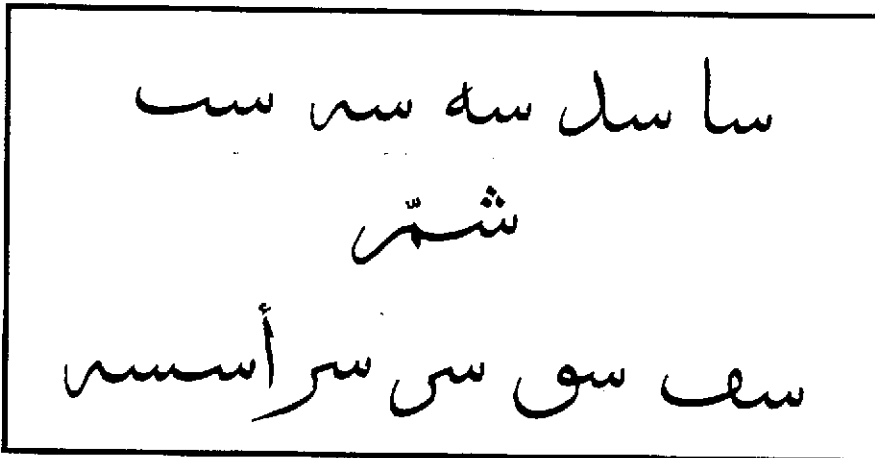 سا سد سه سه سب
شمّر
سف سو سى سر أسسه